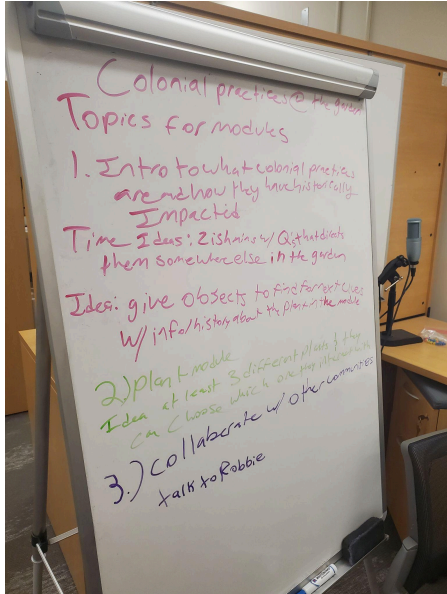 Colonial practices @ the garden
Topics for modules
1. Intro to what colonial practices
are and how they have historically
Impacted
Time Ideas: 2ish mins w/ Qs that directs
them somewhere else in the garden
Idea: give objects to find for next clues
w/ info/history about the plant in the module
2) plant module
Idea at least 3 different plants & they
can choose which one they interact with
3.) Collaborate w/ other communities
talk to Robbie